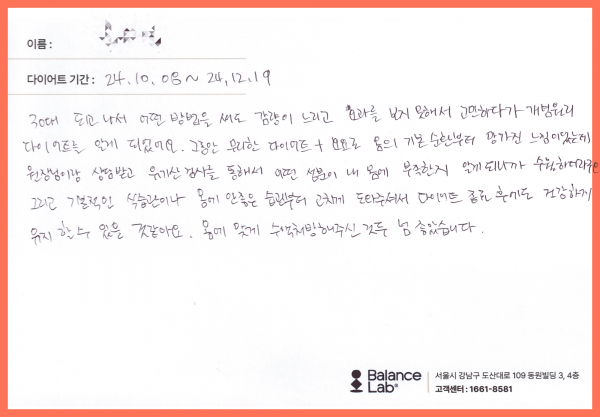 이름 :
다이어트 기간 : 24.10.08 ~ 24.12.19
30대 되고 나서 어떤 방법을 써도 감량이 느리고 효과를 보지 못해서 고민하다가 개병원리
다이어트를 알게 되었어요. 그동안 무리한 다이어트 + 요요로 몸의 기본 순환부터 망가진 느낌이었는데
원장님이랑 상담받고 유기산 검사를 통해서 어떤 성분이 내 몸에 부족한지 알게되니까 수월하더라구요
그리고 기본적인 식습관이나 몸에 안좋은 습관부터 고치게 도와주셔서 다이어트 종료 후에도 건강하게
유지 할 수 있을 것같아요. 몸에 맞게 수액처방해주신 것두 넘 좋았습니다.
Balance
Lab
서울시 강남구 도산대로 109 동원빌딩 3, 4층
고객센터 : 1661-8581